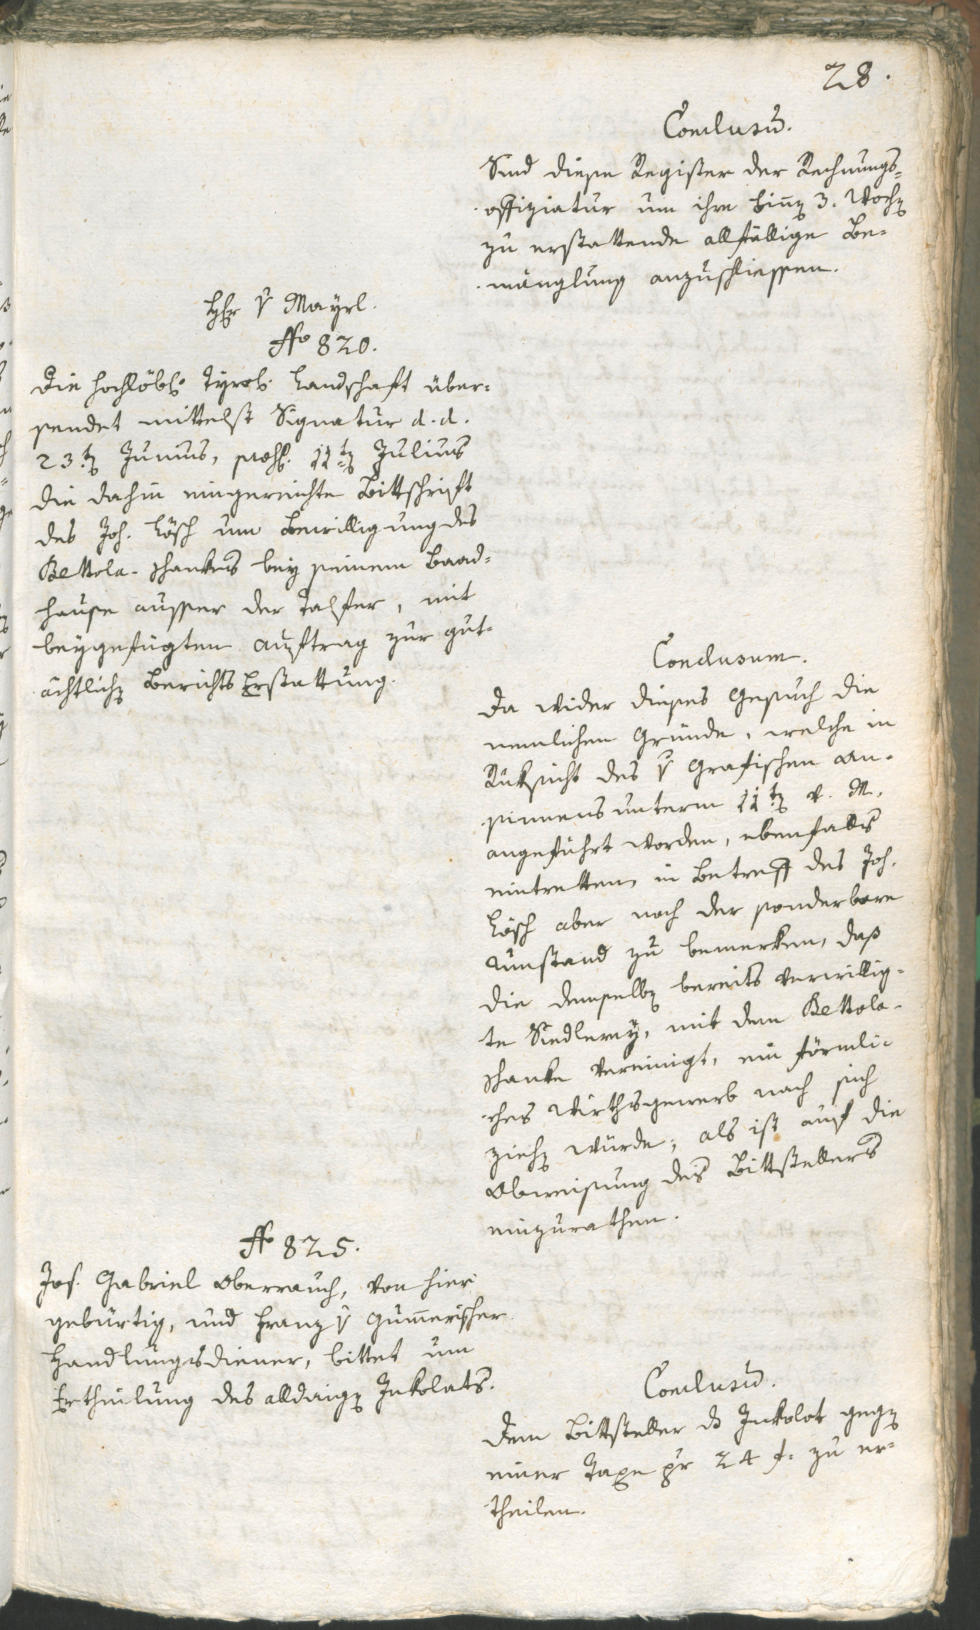 28.
Conclusũ.
Sind diese Register der Rechnungs=
offiziatur um ihre biñẽ 3. Wochẽ
zu erstattende allfällige Be=
mänglung anzuschliessen.
Hr v Mayrl.
No 820.
Die hochlöbl. Tyrol. Landschaft über=
sendet mittelst Signatur d. d.
23.tẽ Junius, 11tẽ Julius
die dahin eingereichte Bittschrift
des Joh. Lösch um Bewilligung des
Bettola-schankes bey seinem Baad=
hause ausser der Talfer, mit
beygefügten Auftrag zur gut=
ächtlichẽ Berichts Erstattung.
Conclusum.
Da wider dieses Gesuch die
nemlichen Gründe, welche in
Rüksicht des v Grafischen An=
sinnens unterm 11tẽ v. M.
angeführt worden, ebenfalls
eintretten, in Betreff des Joh.
Lösch aber noch der sonderbare
Umstand zu bemerken, daß
die demselbẽ bereits verwillig=
te Siederey, mit dem Bettola=
schanke vereinigt, ein förmli=
ches Wirthsgewerb nach sich
ziehẽ würde; als ist auf die
Abweisung des Bittstellers
einzurathen.
No 825.
Jos. Gabriel Oberrauch, von hier
gebürtig, und Franz v Gumerischer
Handlungsdiener, bittet um
Ertheilung des alldaigẽ Inkolats.
Conclusũ.
Dem Bittsteller ds Inkolat gegẽ
einer Taxe pr 24 f. zu er=
theilen.